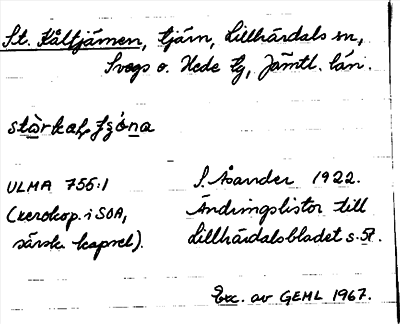 St. Kåltjärnen, tjärn, Lillhärdals sn,
Svegs o. Hede tg, Jämtl. län.
ULMA 756:1
(xerokop. i SOA,
särsk. kapsel).
S. Åsander 1922.
Ändringslistor till
Lillhärdalsbladet s. 57.
Exc. av GEHL 1967.